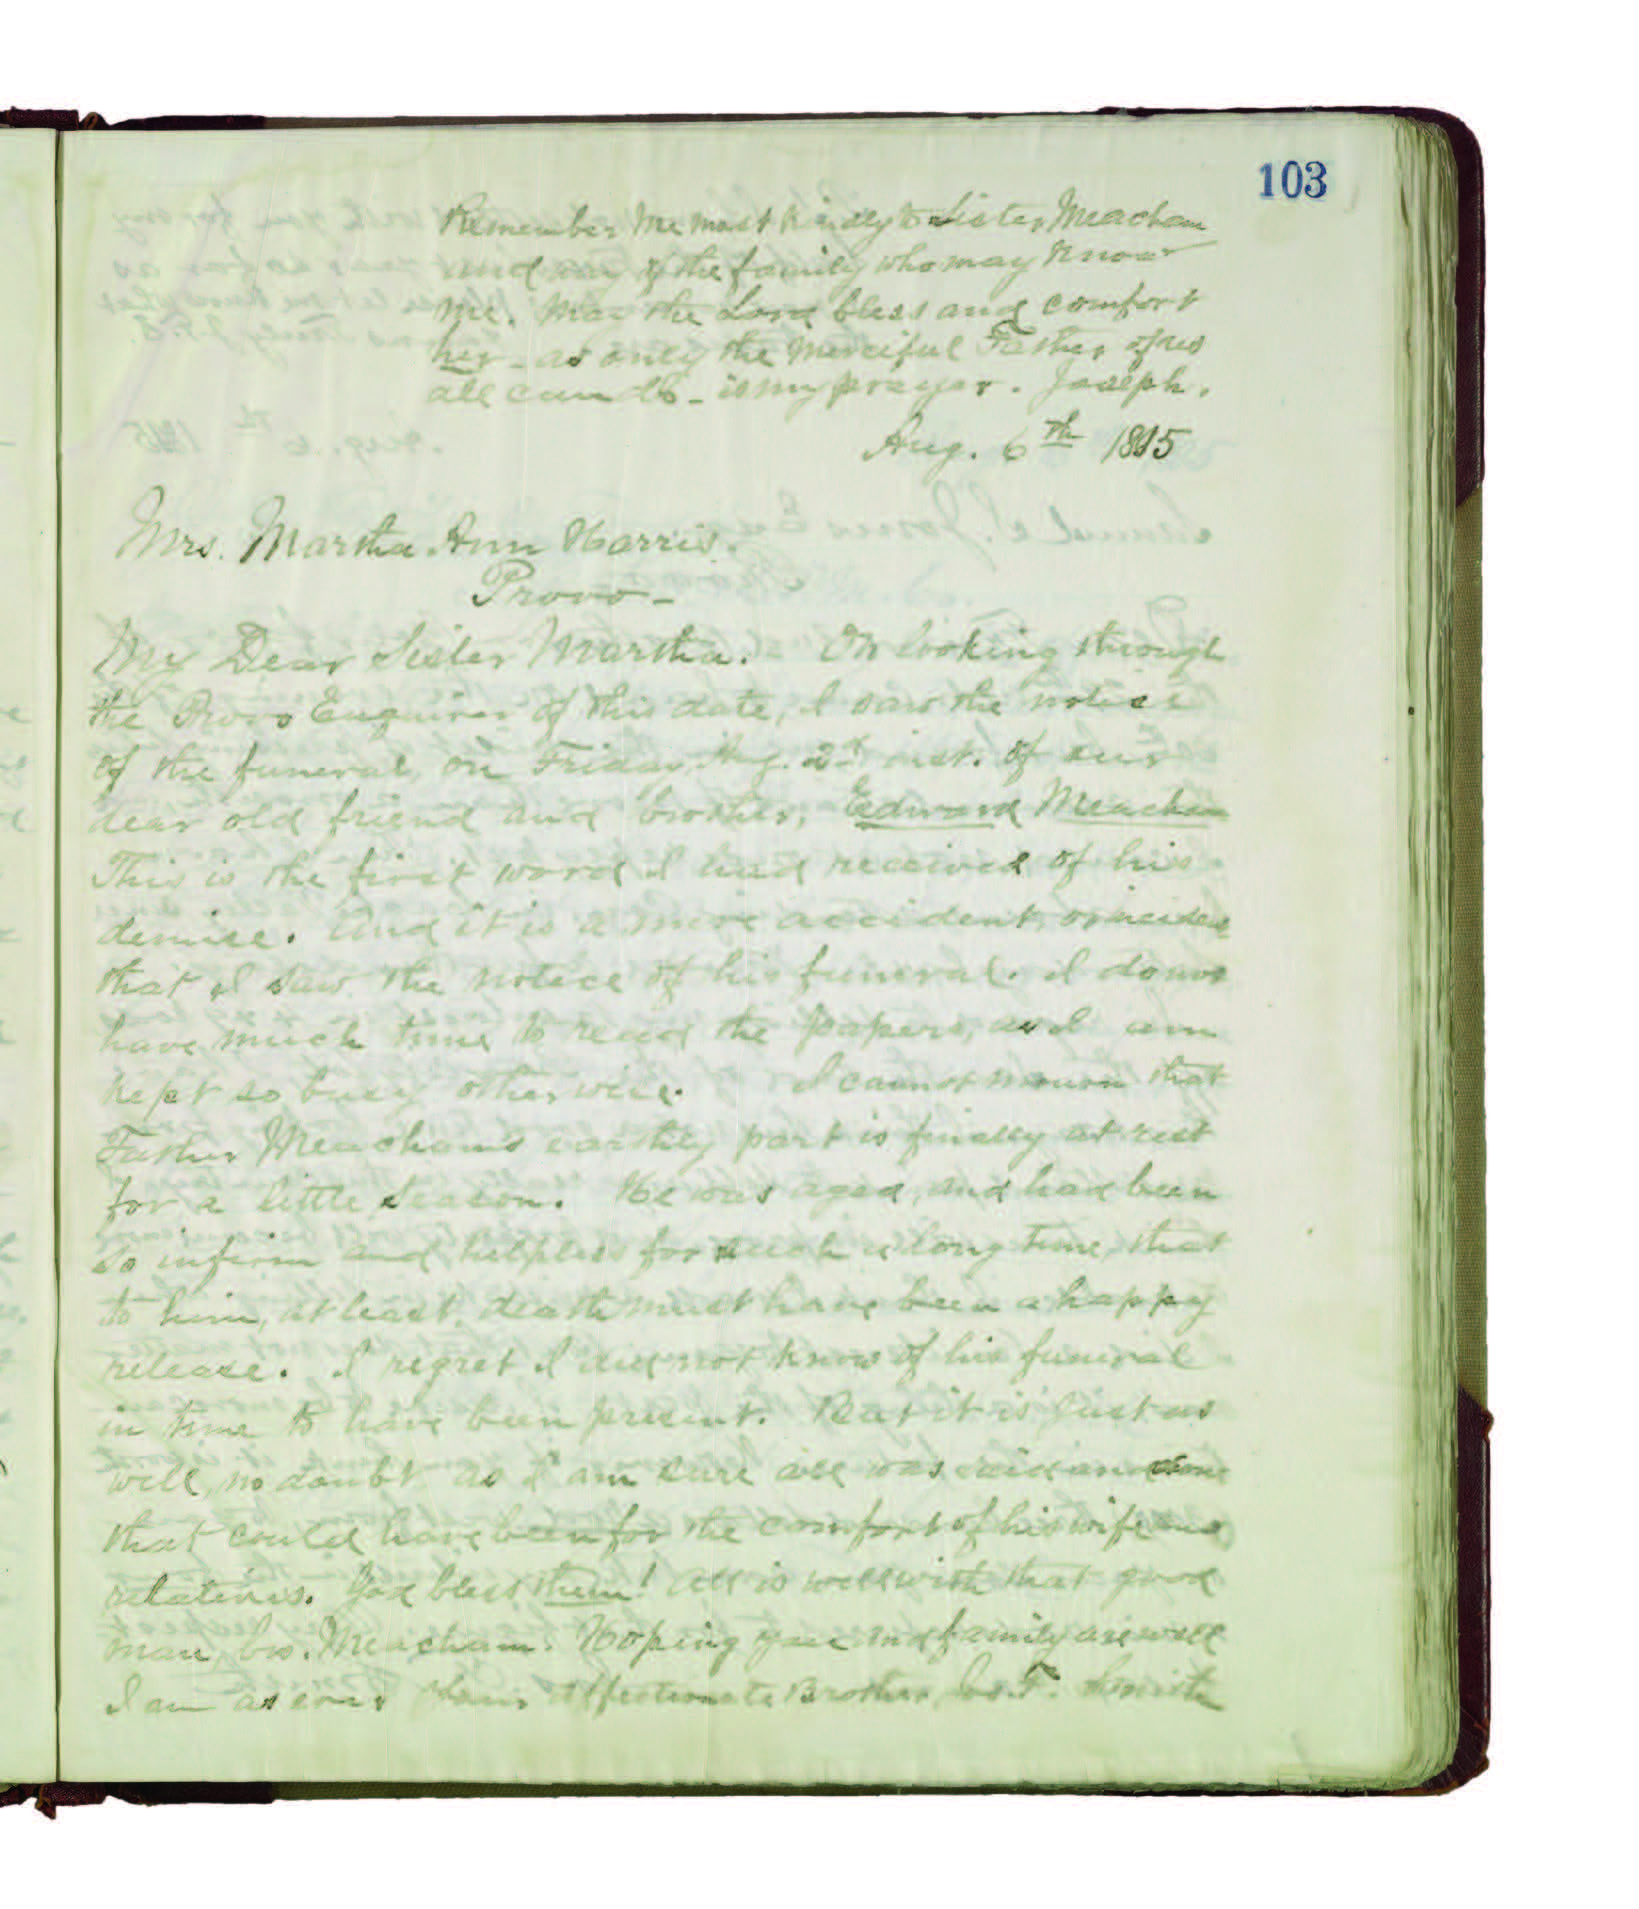 103
Remember me most kindly to Sister Meacham
and any of the family who may know
me. May the Lord bless and comfort
her - as only the Merciful Father of us
all can do - is my prayer. Joseph.
Aug. 6th 1895
Mrs. Martha Ann Harris.
Provo -
My Dear Sister Martha. On looking through
the Provo Enquirer of this date, I saw the notice
of the funeral, on Friday, Aug. 2d inst. of our
dear old friend and brother, Eedward Meacham
This is the first word I had received of his
demise. And it is a mere accident,
that I saw the notice of his funeral. I do not
have much time to read the papers, as I am
kept so busy otherwise. I cannot mourn that
Father Meachams earthly part is finally at rest
for a little season. He was aged, and had been
so infirm and helpless for such a long time, that
to him, at least, death must have been a happy
release. I regret I did not know of his funeral
in time to have been present. But it is just as
well, no doubt as I am sure all was said and done
that could have been for the comfort of his wife and
relatives. God bless them! All is well with that good
man, bro. Meacham. Hoping you and family are well
I am as ever Your affectionate Brother, Jos. F. Smith